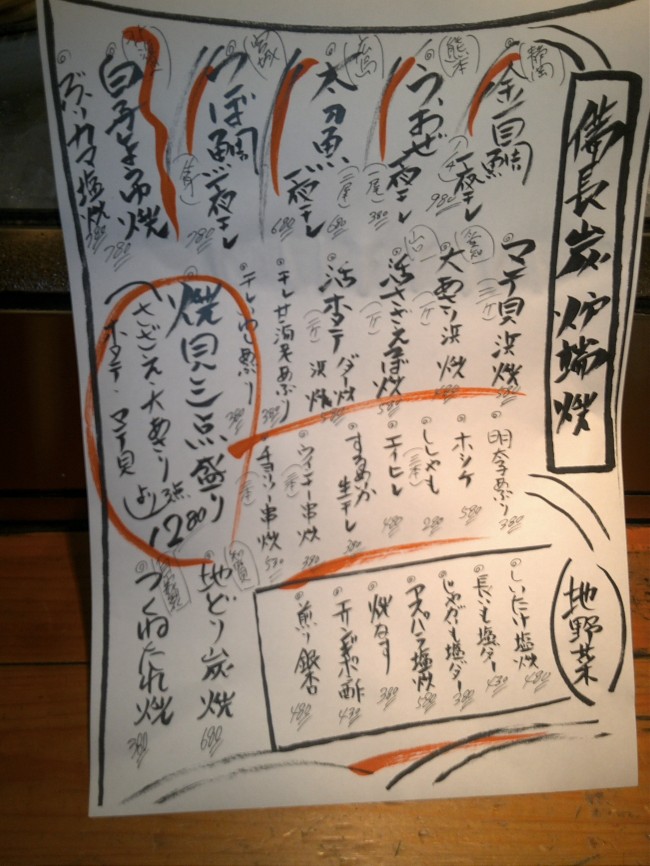 備長炭炉端焼
静岡
金目鯛一夜干し
980
熊本
うおぜ一夜干し
一尾
380
広島
太刀魚一夜干し
680
宮城
つぼ鯛一夜干し
780
白子よう焼
780
ぶりカマ塩焼
マテ貝浜焼
愛知
大あさり浜焼
活さざえつぼ焼
活ホタテバター焼
浜焼
干しいわしあぶり
380
焼貝三点盛り
さざえ・大あさり
ホタテ・マテ貝
より3点
1280
明太子あぶり
380
ホッケ
ししゃも
エイヒレ
するめいか生干し
ウインナー串焼
チョリソー串焼
地どり炭焼
680
つくねたれ焼
380
地野菜
しいたけ塩焼
480
長いも塩バター
430
じゃが芋塩バター
380
アスパラ塩焼
580
焼なす
380
エリンギポン酢
430
煎り銀杏
480